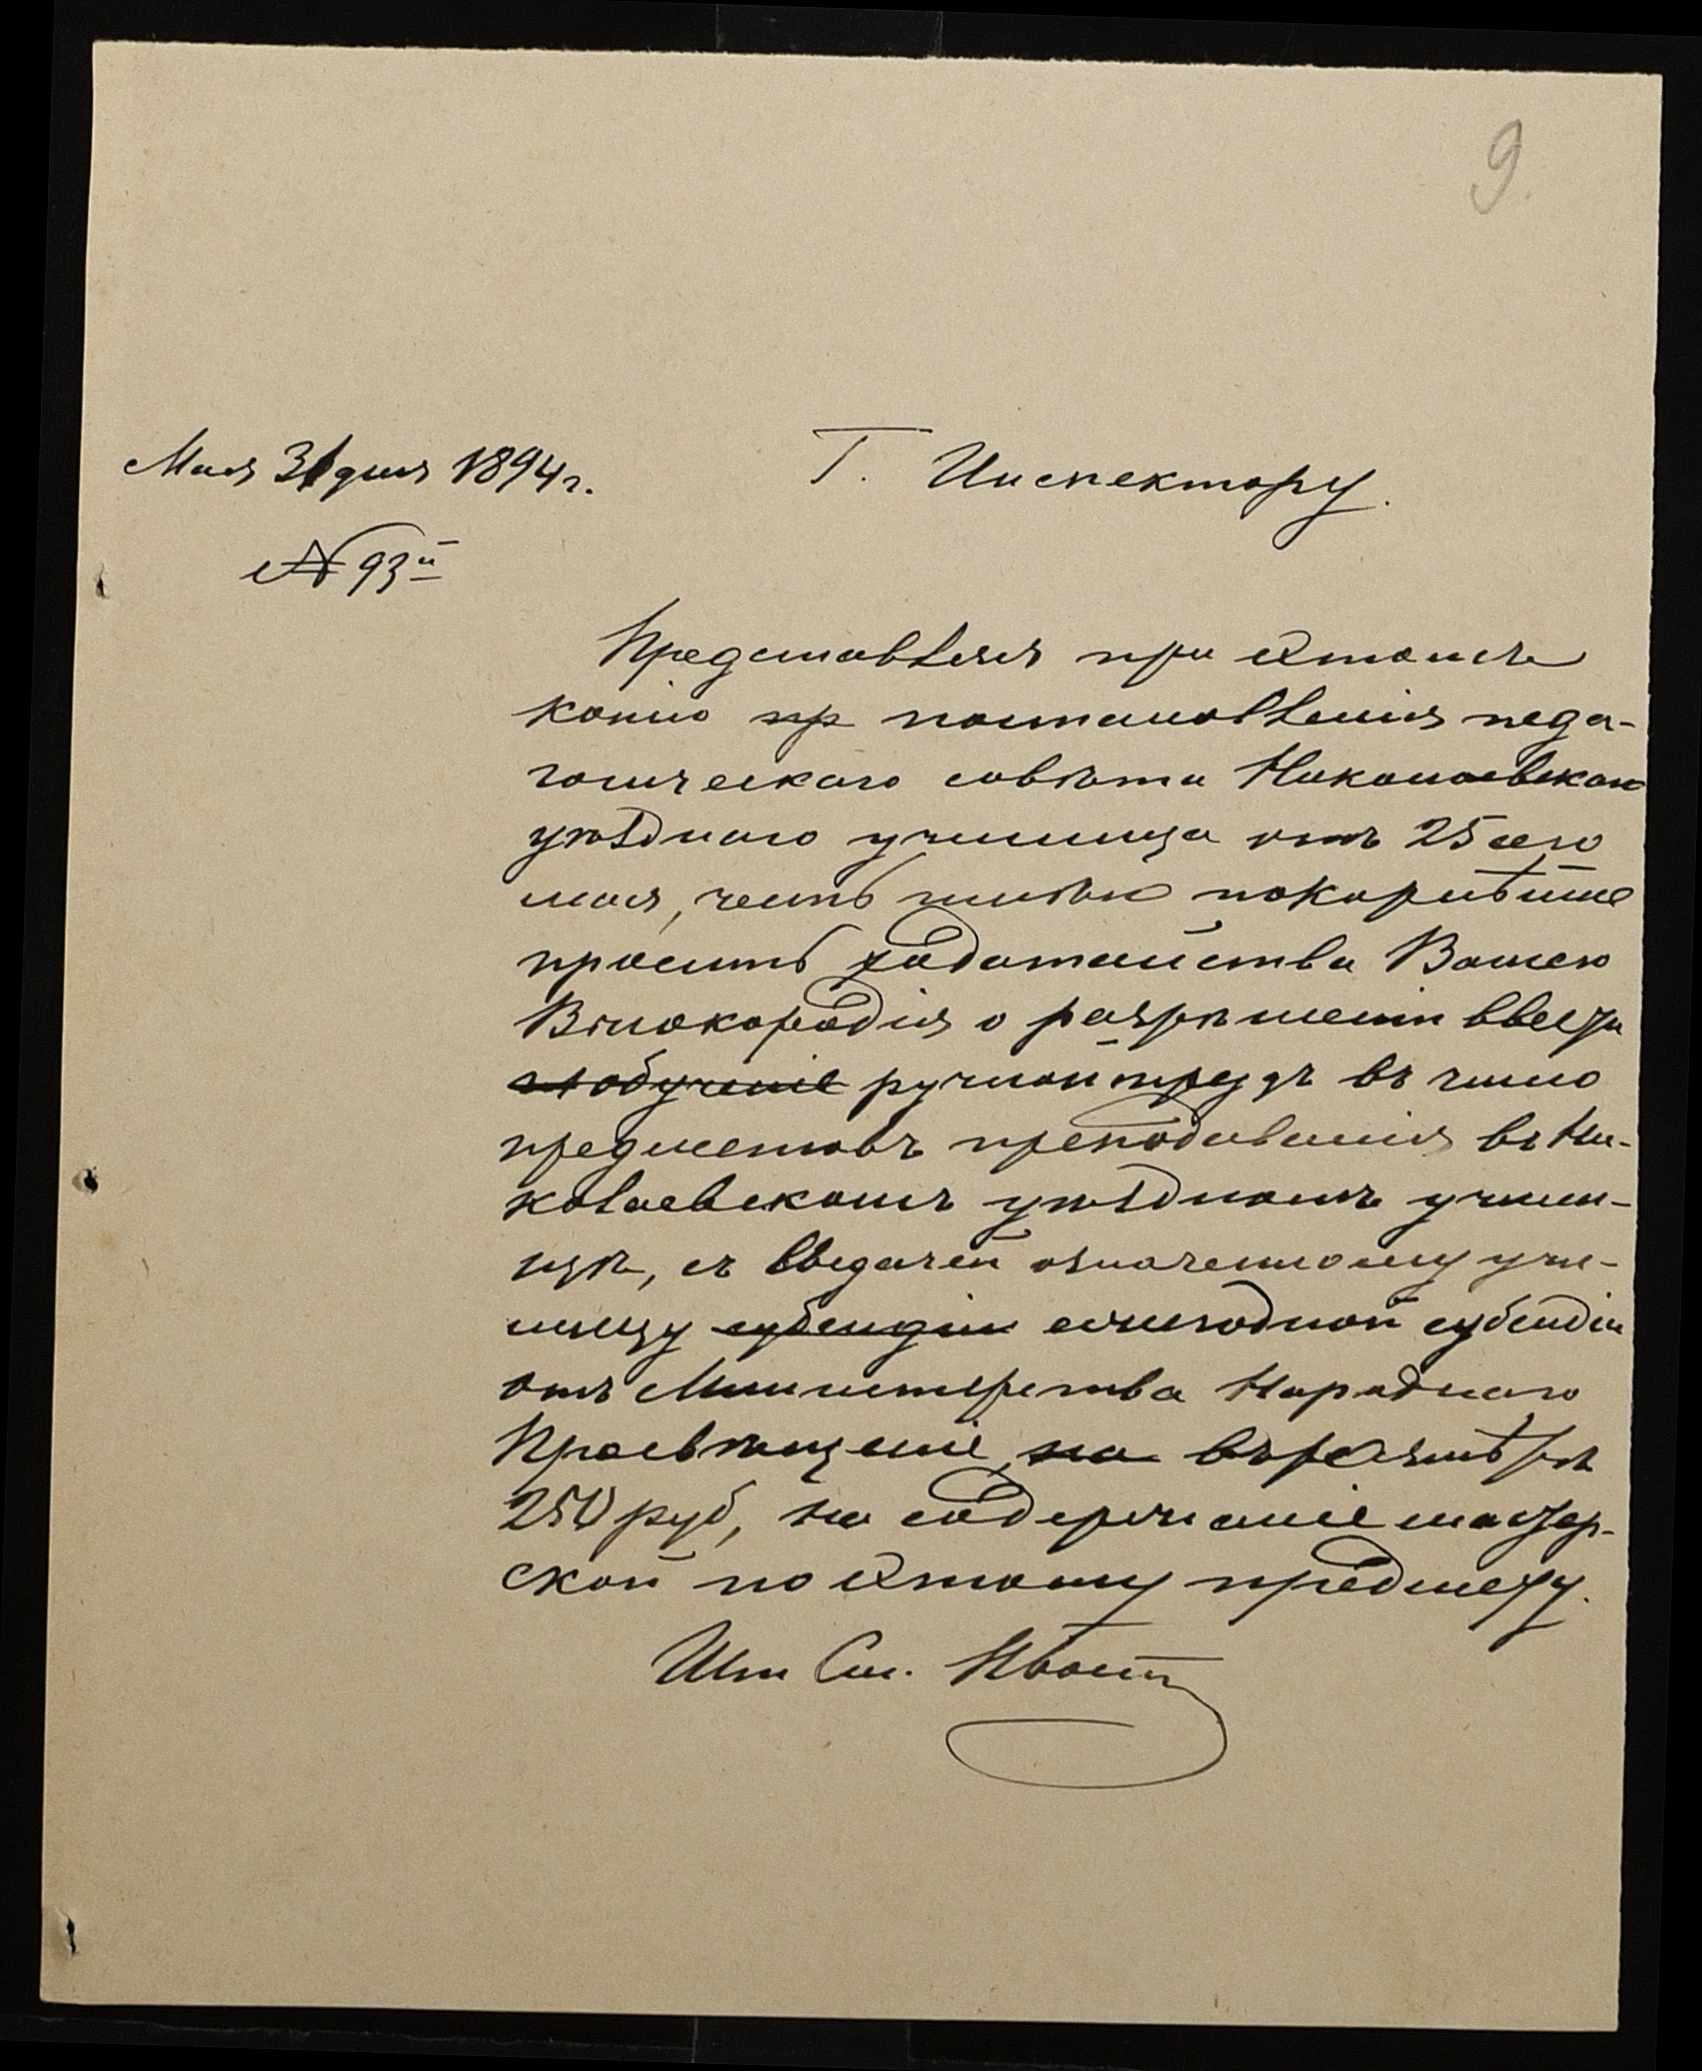 9.
Мая 31 дня 1894 г.
Г. Инспектору.
№ 93й
Представляя при этомъ
копію пр постановленія педа-
гогическаго совѣта Николаевскаго
уѣзднаго училища отъ 25 сего
мая, честь имѣю покорнѣйше
просить ходатайства Вашего
Высокородія о разрѣшеніи ввести
обученіе ручной трудъ въ число
предметовъ преподаванія въ Ни-
колаевскомъ уѣздномъ учили-
щѣ, съ выдачей означенному учи-
лищу субсидіи ежегодной субсидіи
отъ Министерства Народнаго
Просвѣщенія на въ размѣрѣ
250 руб, на содержаніе мастер-
ской по этому предмету.
Шт См.